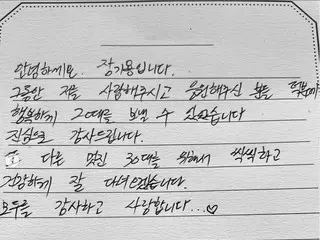 안녕하세요. 장기용입니다.
그동안 저를 사랑해주시고 응원해주신 분들 덕분에
행복하게 20대를 보낼 수 있었습니다
진심으로 감사드립니다.
또 다른 멋진 30대를 위해서 씩씩하고
건강하게 잘 다녀오겠습니다.
모두를 감사하고 사랑합니다...♡